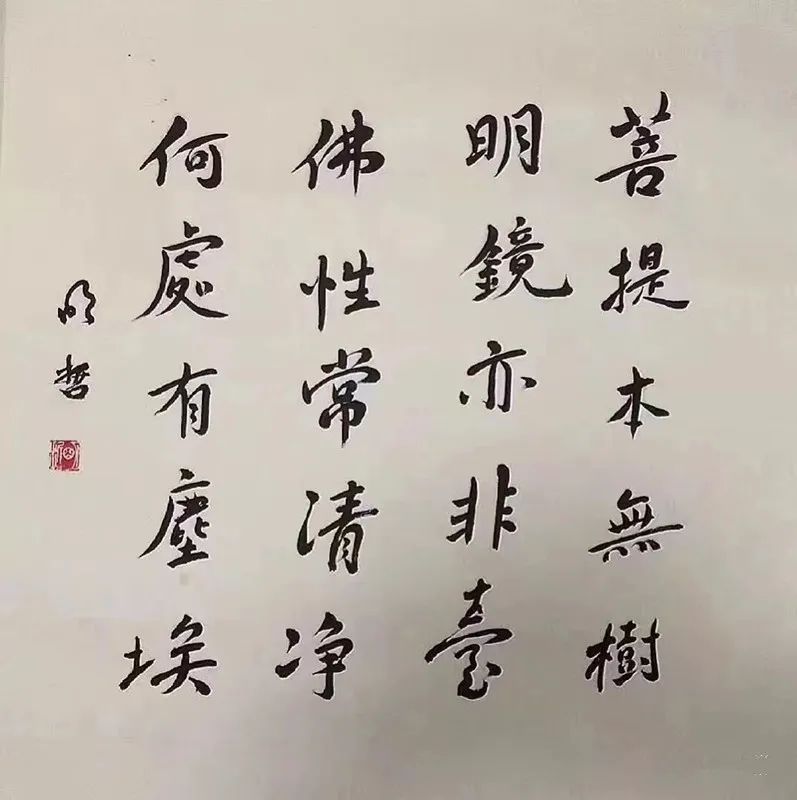 菩提本無樹
明鏡亦非臺
佛性常清净
何處有塵埃
明哲